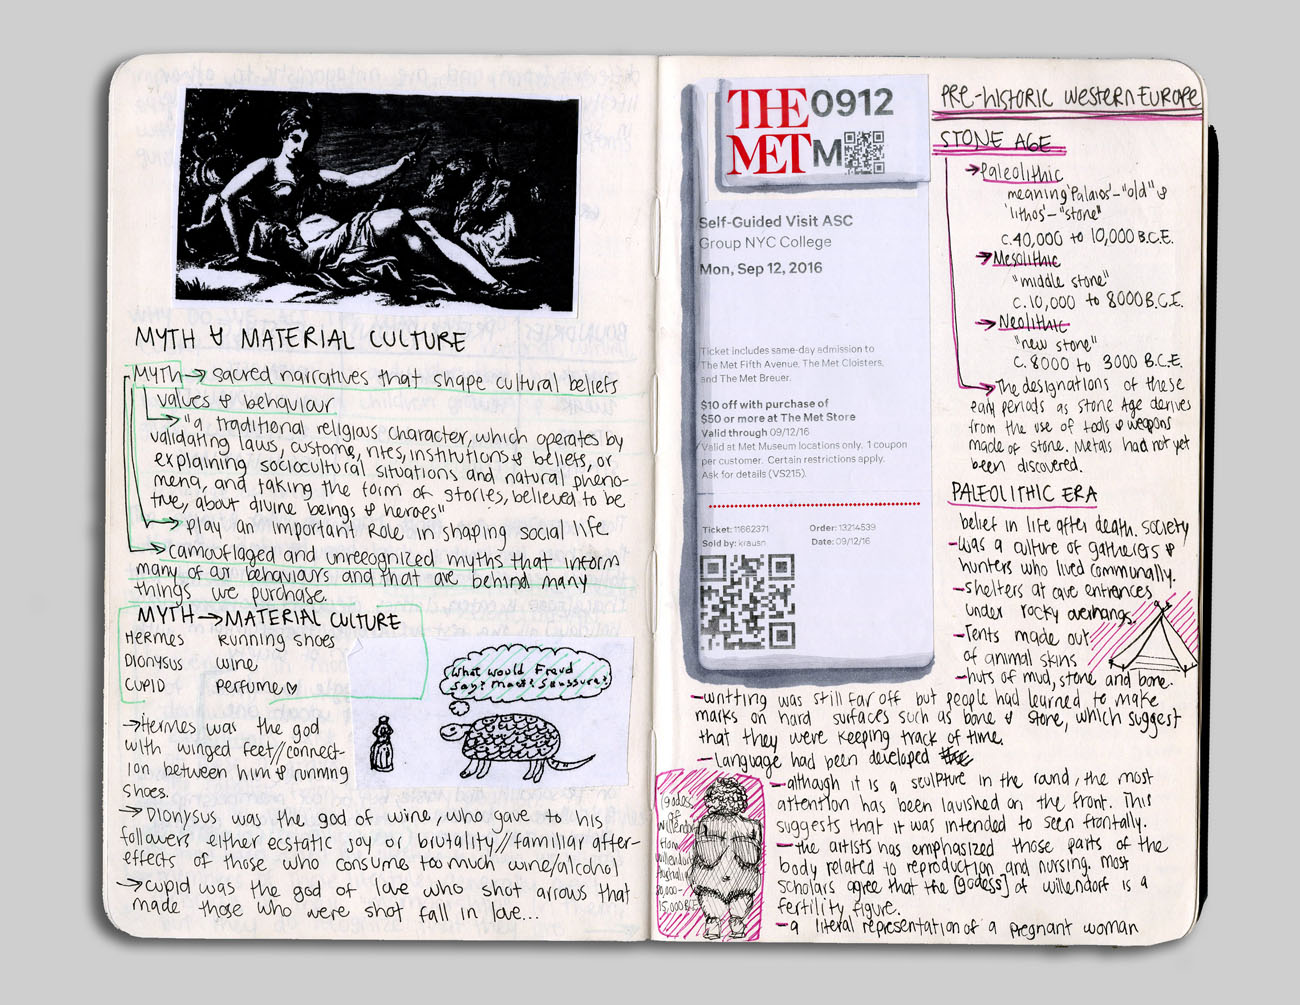 MYTH & MATERIAL CULTURE
MYTH → sacred narratives that shape cultural beliefs
values & behaviour
→ "a traditional religious character, which operates by
validating laws, customs, rites, institutions & beliefs, or
explaining sociocultural situations and natural pheno-
mena, and taking the form of stories, believed to be
true, about divine beings & heroes"
→ play an important role in shaping social life
→ camouflaged and unrecognized myths that inform
many of our behaviours and that are behind many
things we purchase.
MYTH → MATERIAL CULTURE
HERMES running shoes
DIONYSUS wine
CUPID perfume ♡
What would Freud
say? Marx? Saussure?
→ Hermes was the god
with winged feet//connect-
ion between him & running
shoes.
→ Dionysus was the god of wine, who gave to his
followers either ecstatic joy or brutality//familiar after-
effects of those who consume too much wine/alcohol
→ cupid was the god of love who shot arrows that
made those who were shot fall in love...
THE 0912
MET M
Self-Guided Visit ASC
Group NYC College
Mon, Sep 12, 2016
Ticket includes same-day admission to
The Met Fifth Avenue, The Met Cloisters,
and The Met Breuer.
$10 off with purchase of
$50 or more at The Met Store
Valid through 09/12/16
Valid at Met Museum locations only. 1 coupon
per customer. Certain restrictions apply.
Ask for details (VS215).
Ticket: 11662371 Order: 13214539
Sold by: krausn Date: 09/12/16
PRE-HISTORIC WESTERN EUROPE
STONE AGE
→ Paleolithic
meaning 'Palaios' - "old" &
'lithos' - "stone"
c. 40,000 to 10,000 B.C.E.
→ Mesolithic
"middle stone"
c. 10,000 to 8000 B.C.E.
→ Neolithic
"new stone"
c. 8000 to 3000 B.C.E.
→ The designations of these
early periods as Stone Age derives
from the use of tools & weapons
made of stone. Metals had not yet
been discovered.
PALEOLITHIC ERA
belief in life after death. society
- was a culture of gatherers &
hunters who lived communally.
- shelters at cave entrances
under rocky overhangs.
- Tents made out
of animal skins
- huts of mud, stone and bone.
- writting was still far off but people had learned to make
marks on hard surfaces such as bone & stone, which suggest
that they were keeping track of time.
- Language had been developed
- although it is a sculpture in the round, the most
attention has been lavished on the front. This
suggests that it was intended to seen frontally.
- the artists has emphasized those parts of the
body related to reproduction and nursing. most
scholars agree that the [godess] of willendorf is a
fertility figure.
- a literal representation of a pregnant woman
[Godess]
of
willendorf
from
willendorf
15,000 B.C.E.